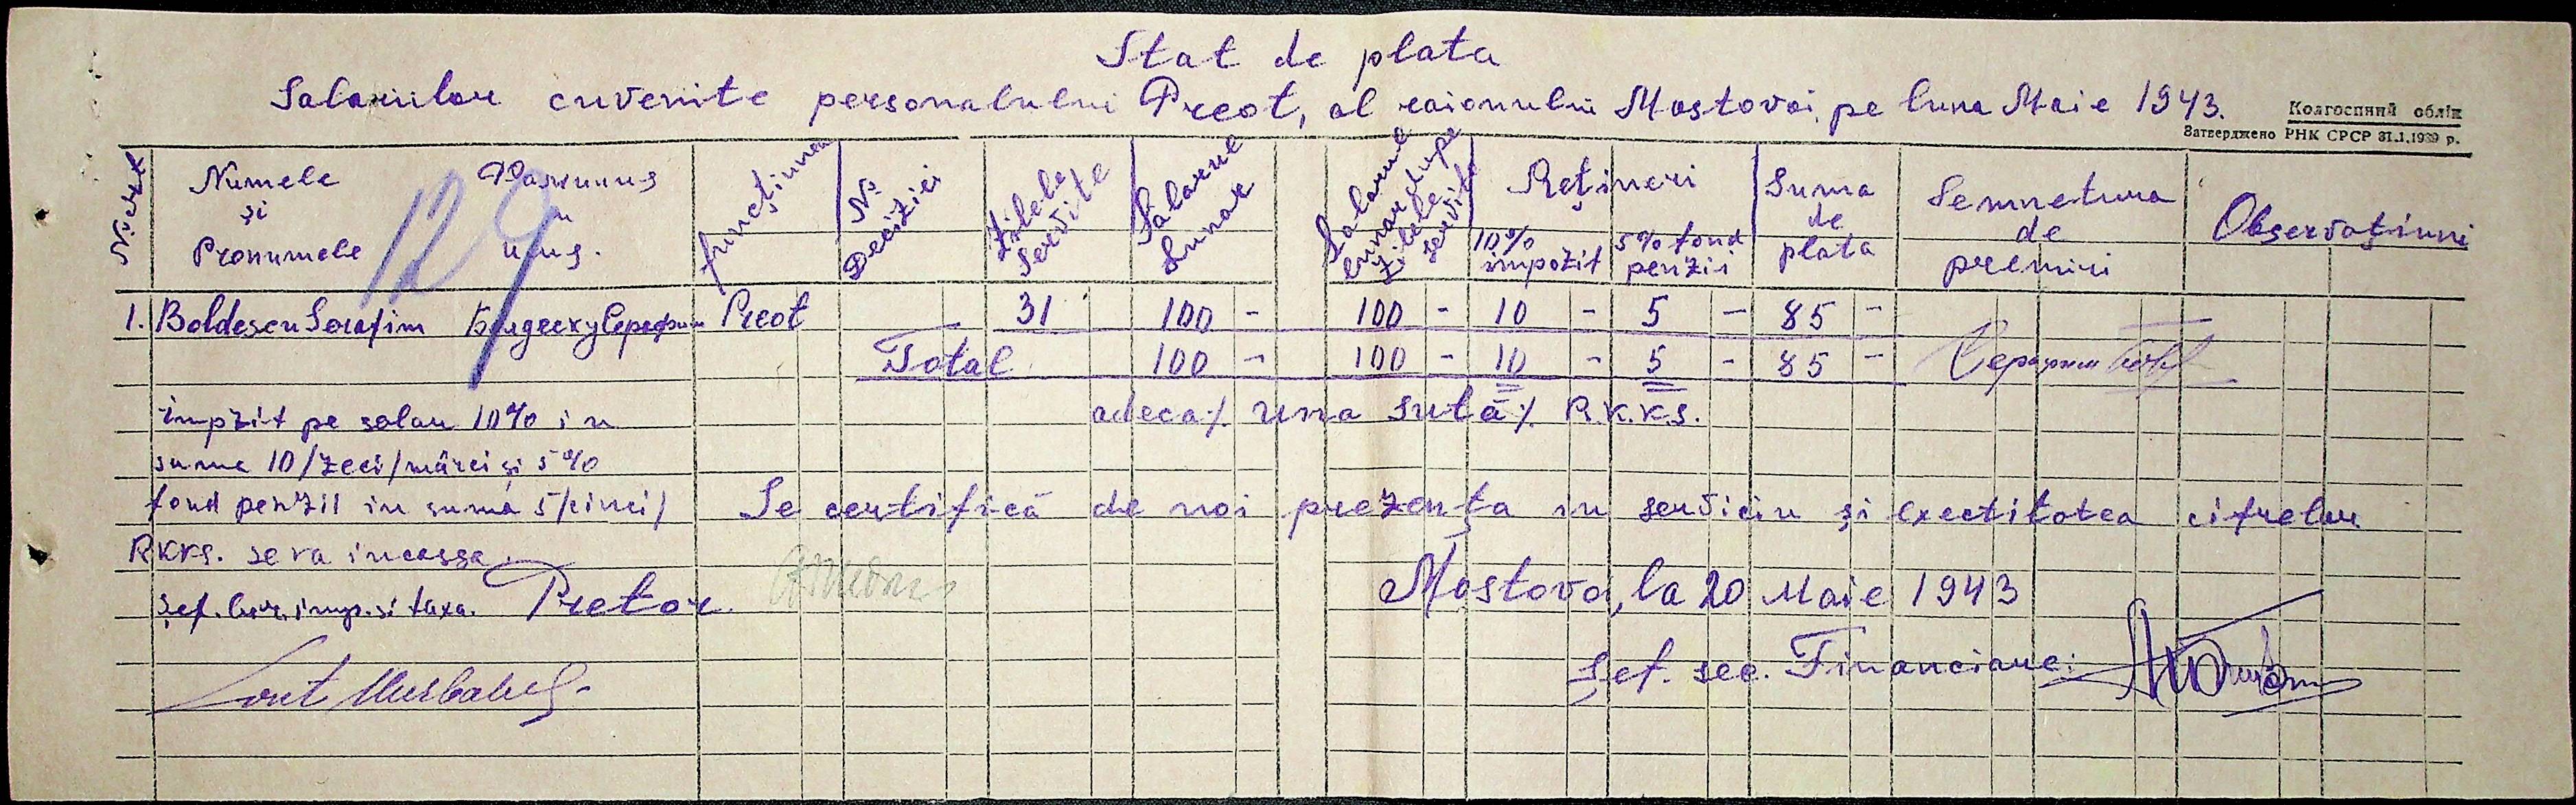 Stat de plata
Salariilor cuvenite personalului Preot, al raionului Mostovoi, pe luna Maie 1943.
Колгоспний облік
Затверджено РНК СРСР 31.1.1939 р.
№ crt
Numele și Pronumele
Фамилия и имя.
funcțiunea
№ Deciziei
Zilele servite
Salarul lunar
Salarul lunar dupe zilele servite
Rețineri
10% impozit
5% fond penzii
Suma de plata
Semnetura de premiri
Observațiuni
129
1. Boldescu Serafim Болдеску Серафим Preot 31 100 - 100 - 10 - 5 - 85 -
Total 100 - 100 - 10 - 5 - 85 -
Серафим
adeca ٪ una sută ٪ R.K.K.S.
impzit pe salau 10% in
suma 10/zeci/mărci și 5%
fond penzii in sumá 5/cinci/
RKKS. se va incassa.
Se certifică de noi prezența in serviciu și exectitatea cifrelor
Mostovoi, la 20 Maie 1943
șef. bir. imp. si taxa. Pretor.
Șef. sec. Financiare: